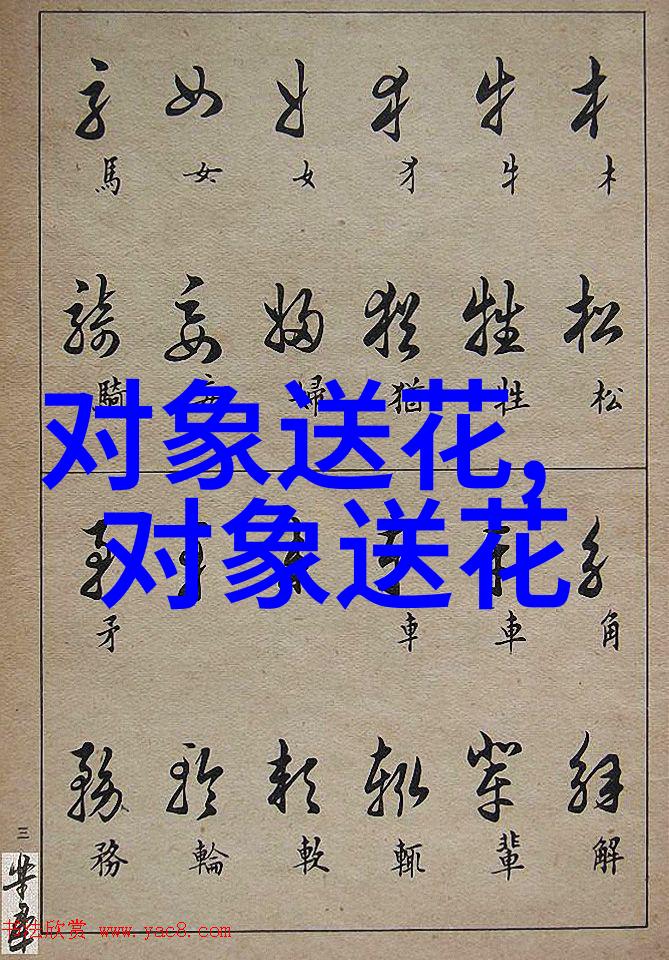 木 牛 犭 女 女 馬
松 牲 猶 婦 妄 騎
对象送花,
对象送花
角 車 車 矛
解 輩 輒 軟 輪 務
三
书法欣赏 www.yac8.com